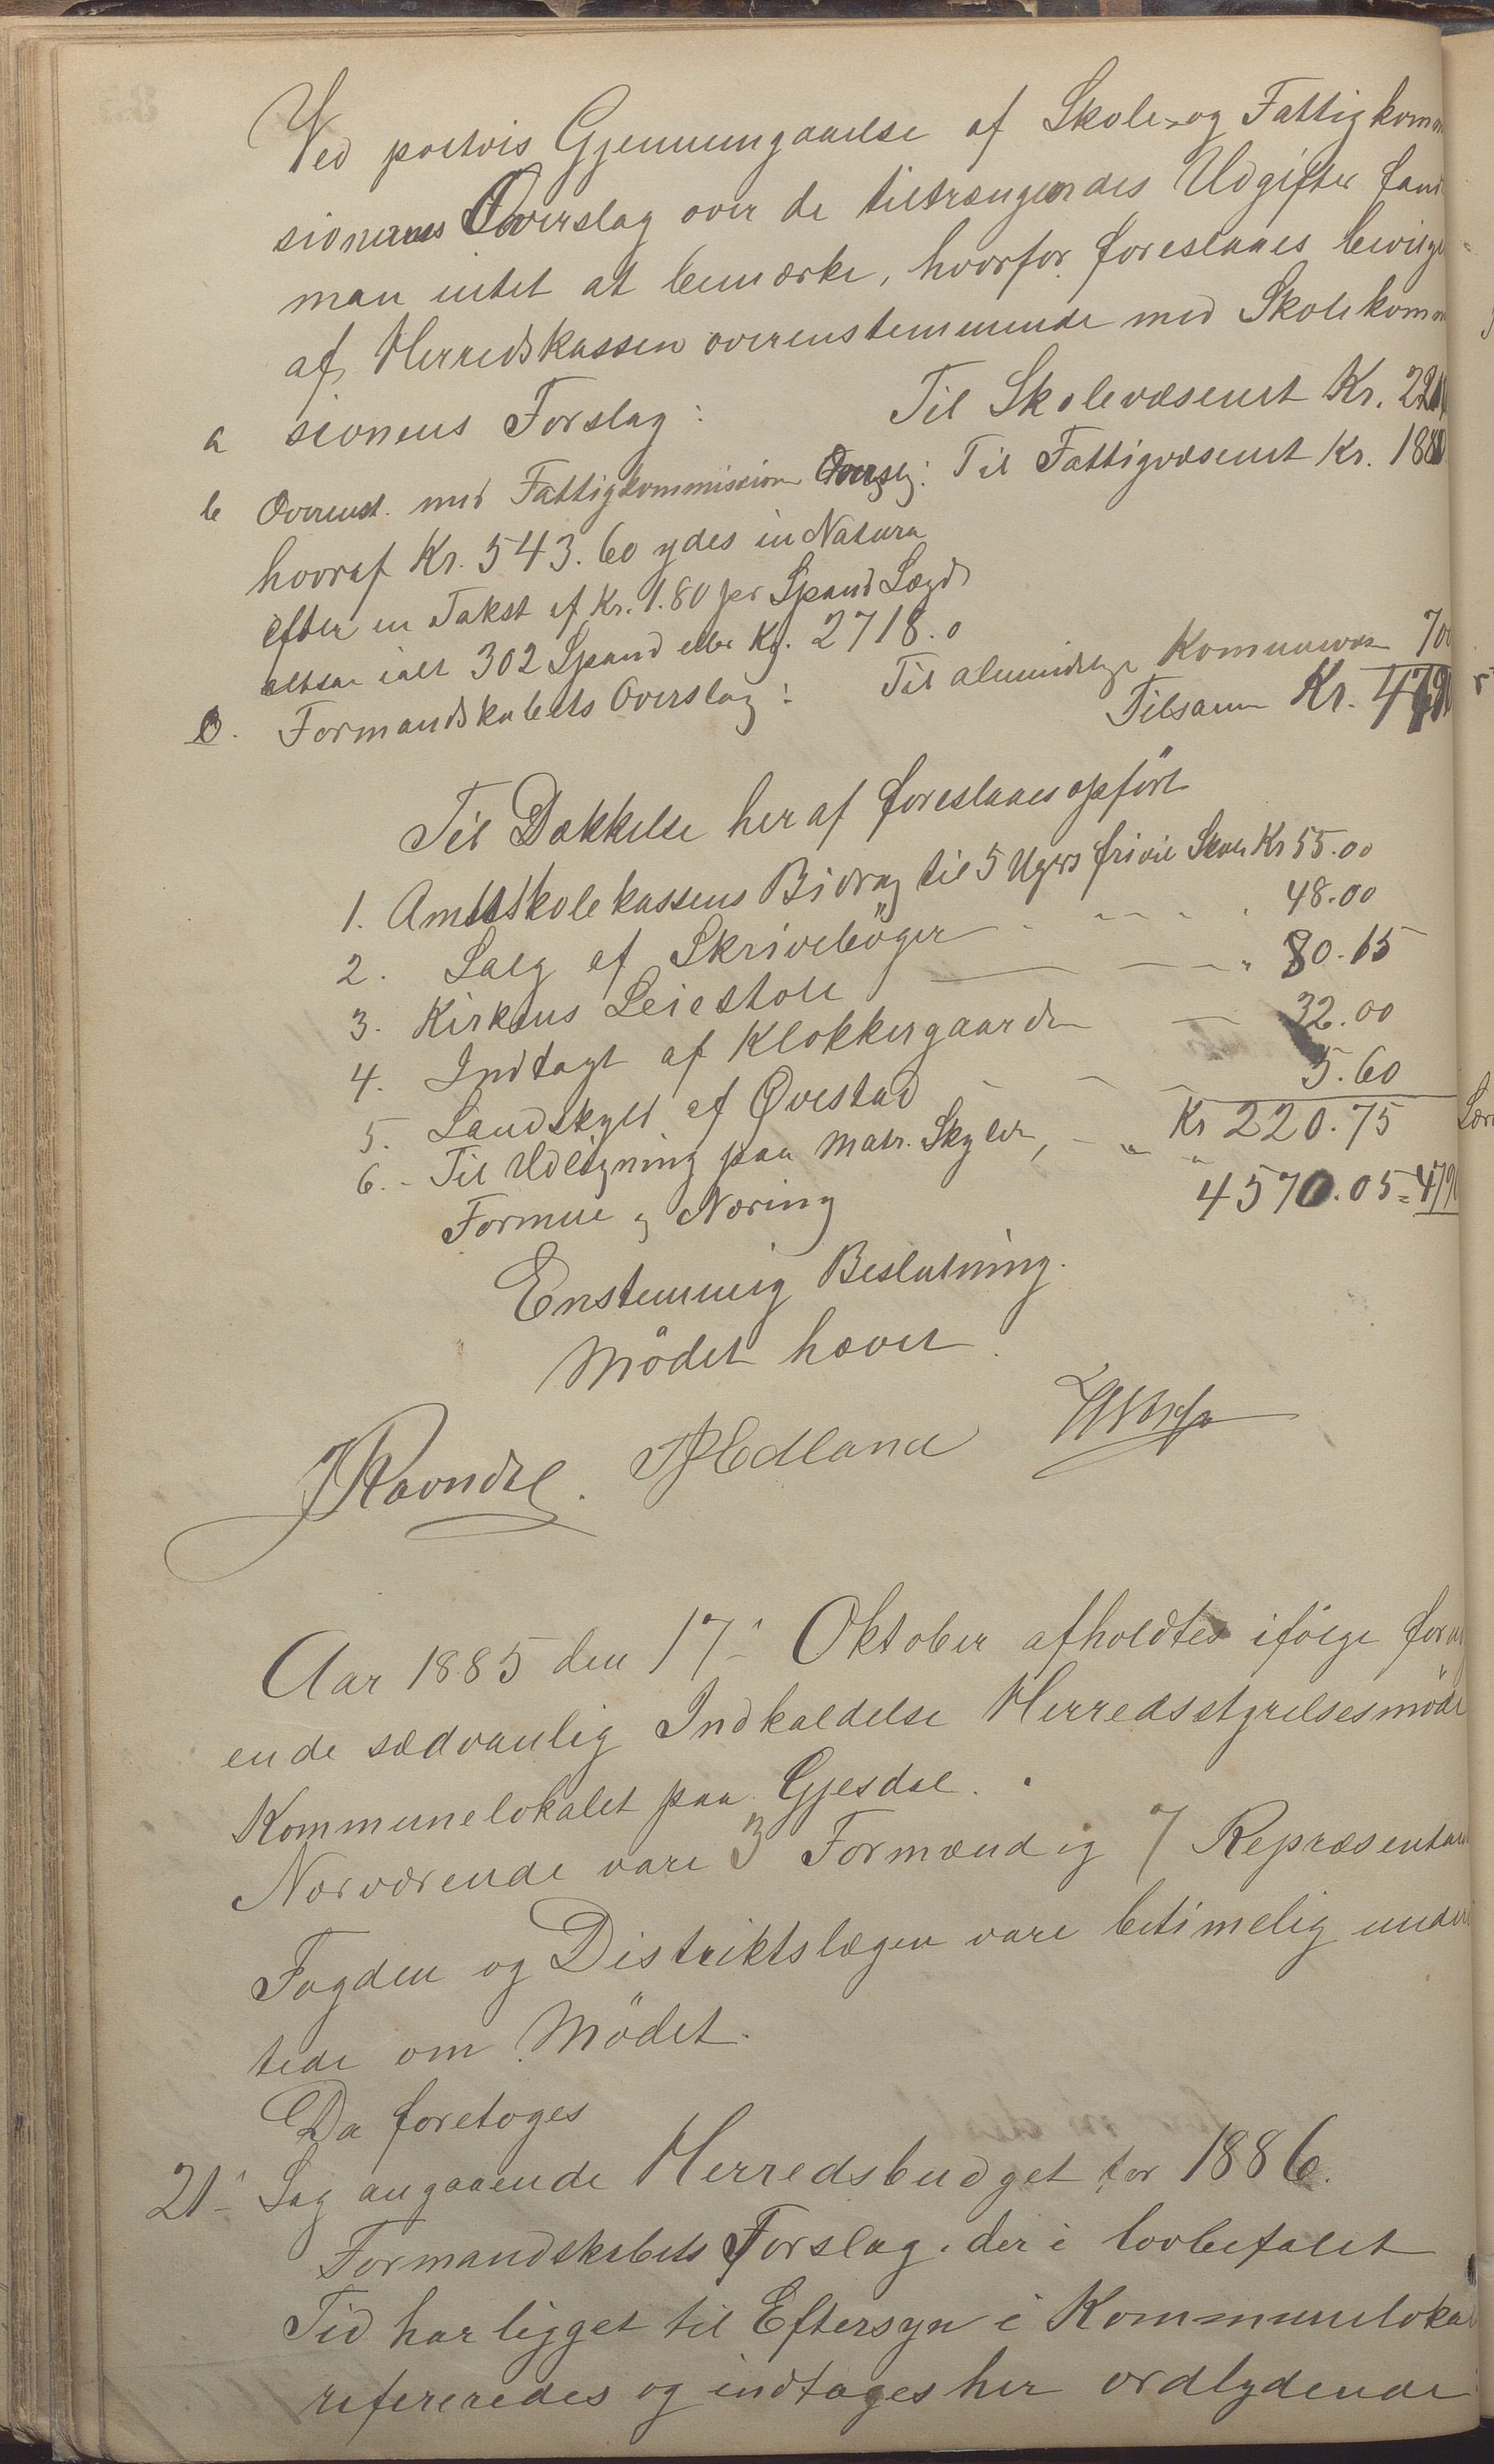 Ved postvis Gjennemgaaelse af Skole- og Fattigkom
sionernes Overslag over de tiltrængendes Udgifter fand
man intet at bemærke, hvorfor foreslaaes bevilge
af Herredskassen overenstemmende med Skolekom
a sionens Forslag: Til Skolevæsenet Kr.
b Overenst. med Fattigkommission Overslg: Til Fattigvæsenet Kr.
hvoraf Kr. 543.60 ydes in Natura
efter en Takst af Kr. 1.80 per Spand Lægd
altsaa ialt 302 Spand eller Kg. 2718.0
Formandskabets Overslag: Til almindelige Kommunevæs 700
Tilsamm Kr.
Til Dækkelse heraf foreslaaes opført
1. Amtsskolekassens Bidrag til 5 Ugers frivil Skole Kr 55.00
2. Salg af Skrivebøger 48.00
3. Kirkens Leiestole " 80.15
4. Indtægt af Klokkergaarden 32.00
5. Landskyld af Øvestad 5.60
Kr 220.75
6. Til Udligning paa Matr. Skyld,
Formue og Næring 4570.05 =
Enstemmig Beslutning.
Mödet hævet.
Ravndal. Edland
Aar 1885 den 17de Oktober afholdtes ifölge
ende sædvanlig Indkaldelse Herredsstyrelsesmöde
Kommunelokalet paa Gjesdal.
Nærværende vare 3 Formænd og 7 Repræsentan
Fogden og Distriktslægen vare betimelig under
tede om Mödet.
Da foretoges
21 Sag angaaende Herredsbudget for 1886.
Formandskabets Forslag, der i lovbefalet
Tid har ligget til Eftersyn i Kommunelokal
refereredes og indtages her ordlydende